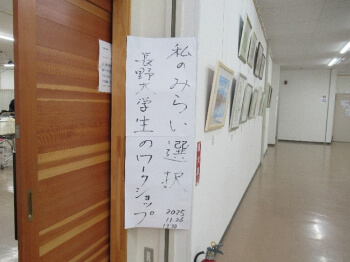 私のみらい選択
長野大学生のワークショップ
2025
11.26